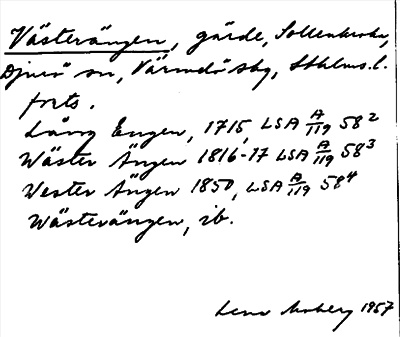 Västerängen, gärde, Sollenkroka,
Djurö sn, Värmdö skg, Sthlms l.
forts.
Lång Engen, 1715, LSA A/119 58²
Wäster Ängen 1816-17 LSA A/119 58³
Wester Ängen 1850, LSA A/119 58⁴
Wästerängen, ib.
Lena Moberg 1957